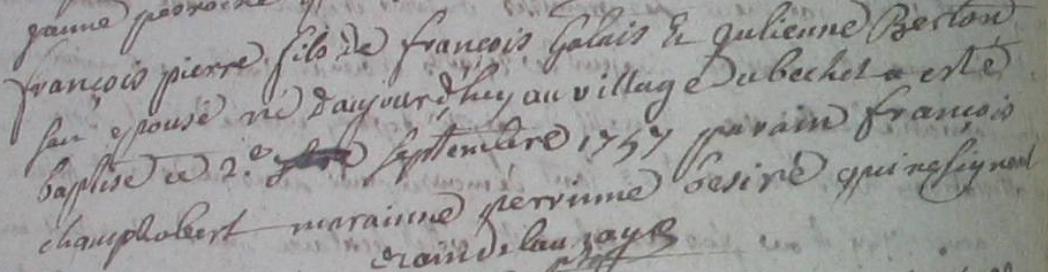 françois pierre fils de françois Galais Et Julienne Berton
son epouse né d'aujourd'huy au village du bechet a esté
baptisé ce 2.e septembre 1757 parain françois
champhobert marainne perrinne besiré qui ne signent